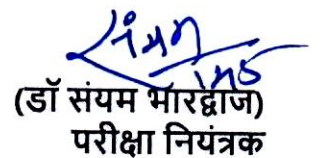 (डॉ संयम भारद्वाज)
परीक्षा नियंत्रक